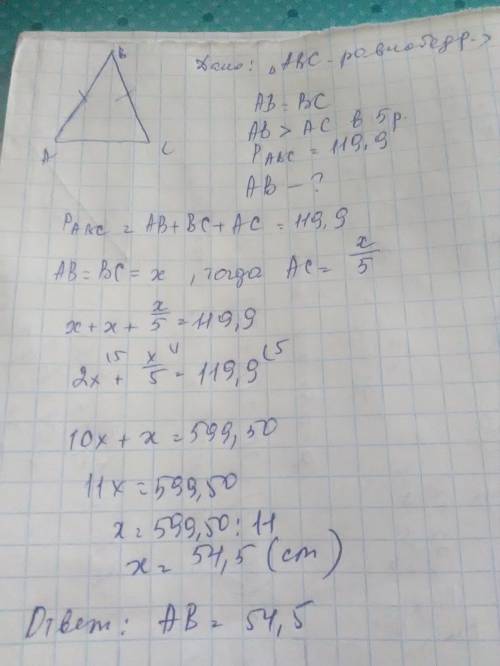 B
A
C
Дано: △ABC - равнобедр. =>
AB = BC
AB > AC в 5 р.
P ABC = 119,9
AB - ?
P ABC = AB + BC + AC = 119,9
AB = BC = x , тогда AC = x/5
x + x + x/5 = 119,9
2x (5 + x/5 (1 = 119,9 (5
10x + x = 599,50
11x = 599,50
x = 599,50 : 11
x = 54,5 (cm)
Ответ: AB = 54,5